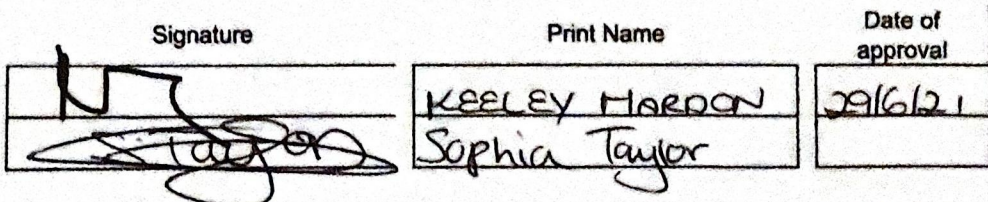 Signature Print Name Date of
approval
KEELEY HARDON 29/6/21
STaylor Sophia Taylor